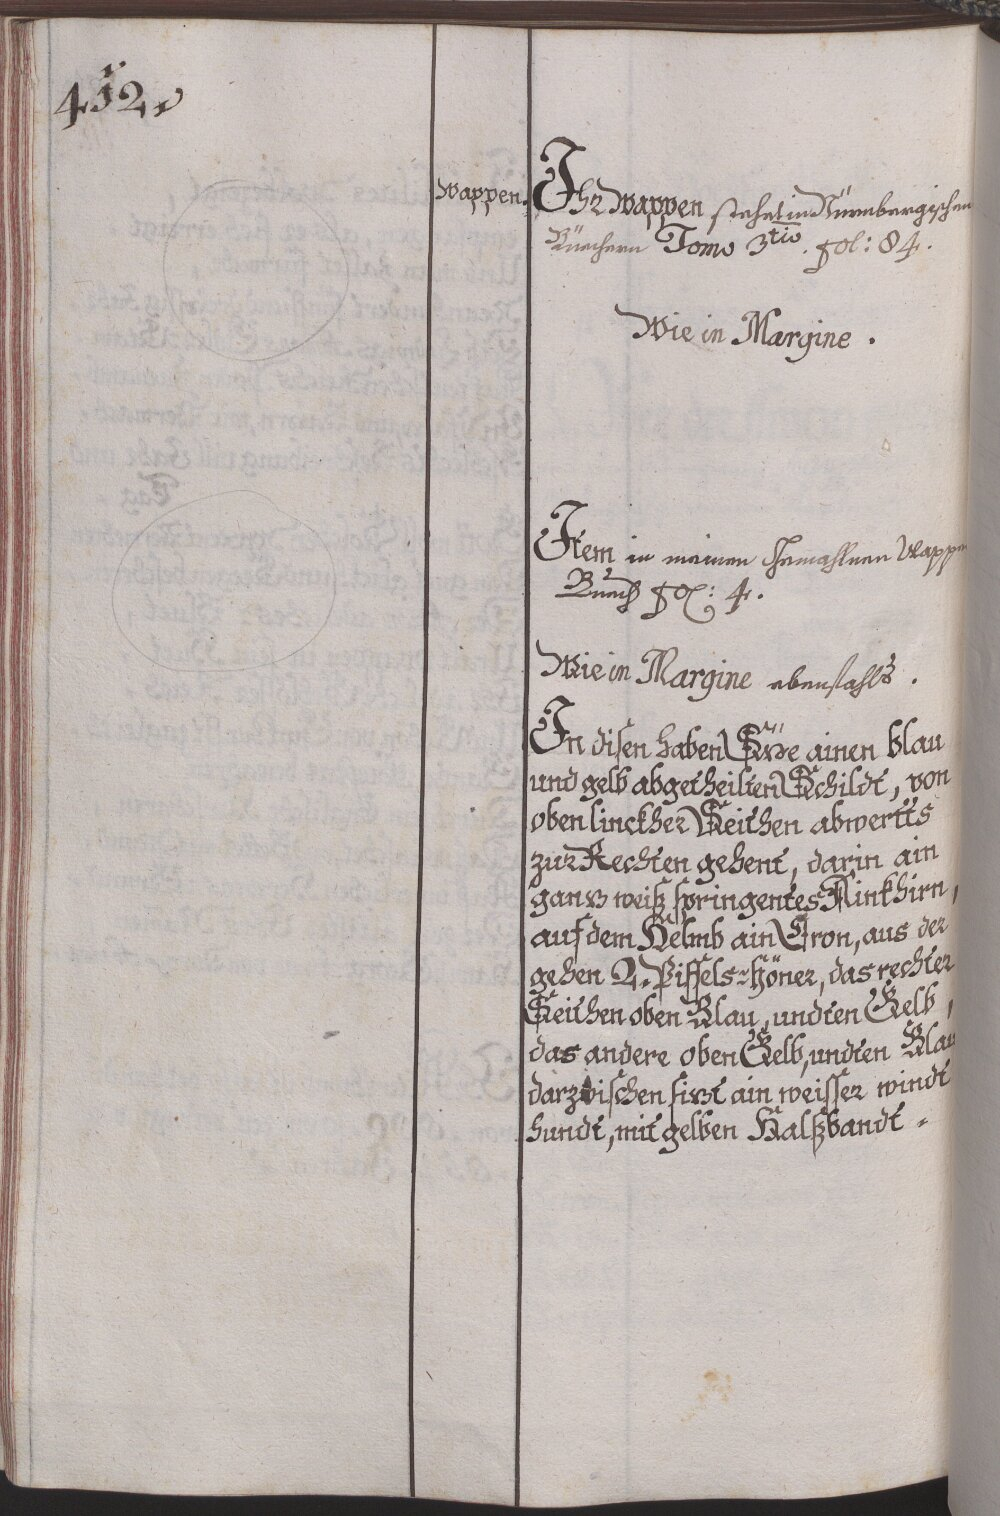 452
Wappen.
Ihr Wappen stehet in Nürnbergischen
Büechern Tomo 3tio. fol: 84.
Wie in Margine.
Item in meinen Gemahlnen Wappen
Buech fol: 4.
Wie in Margine ebenfahls.
In disen haben Sÿe ainen blau
und gelb abgetheilten Schildt, von
oben linckher Seithen abwertts
zur Rechten gehent, darin ain
ganz weiß springentes Ainkhirn,
auf dem Helmb ain Cron, aus der
gehen 2. Piffels-Höner, das rechter
Seithen oben Blau, undten Gelb,
das andere oben Gelb, undten Blau
darzwischen sizt ain weisser windt
hundt, mit gelben Halßbandt.